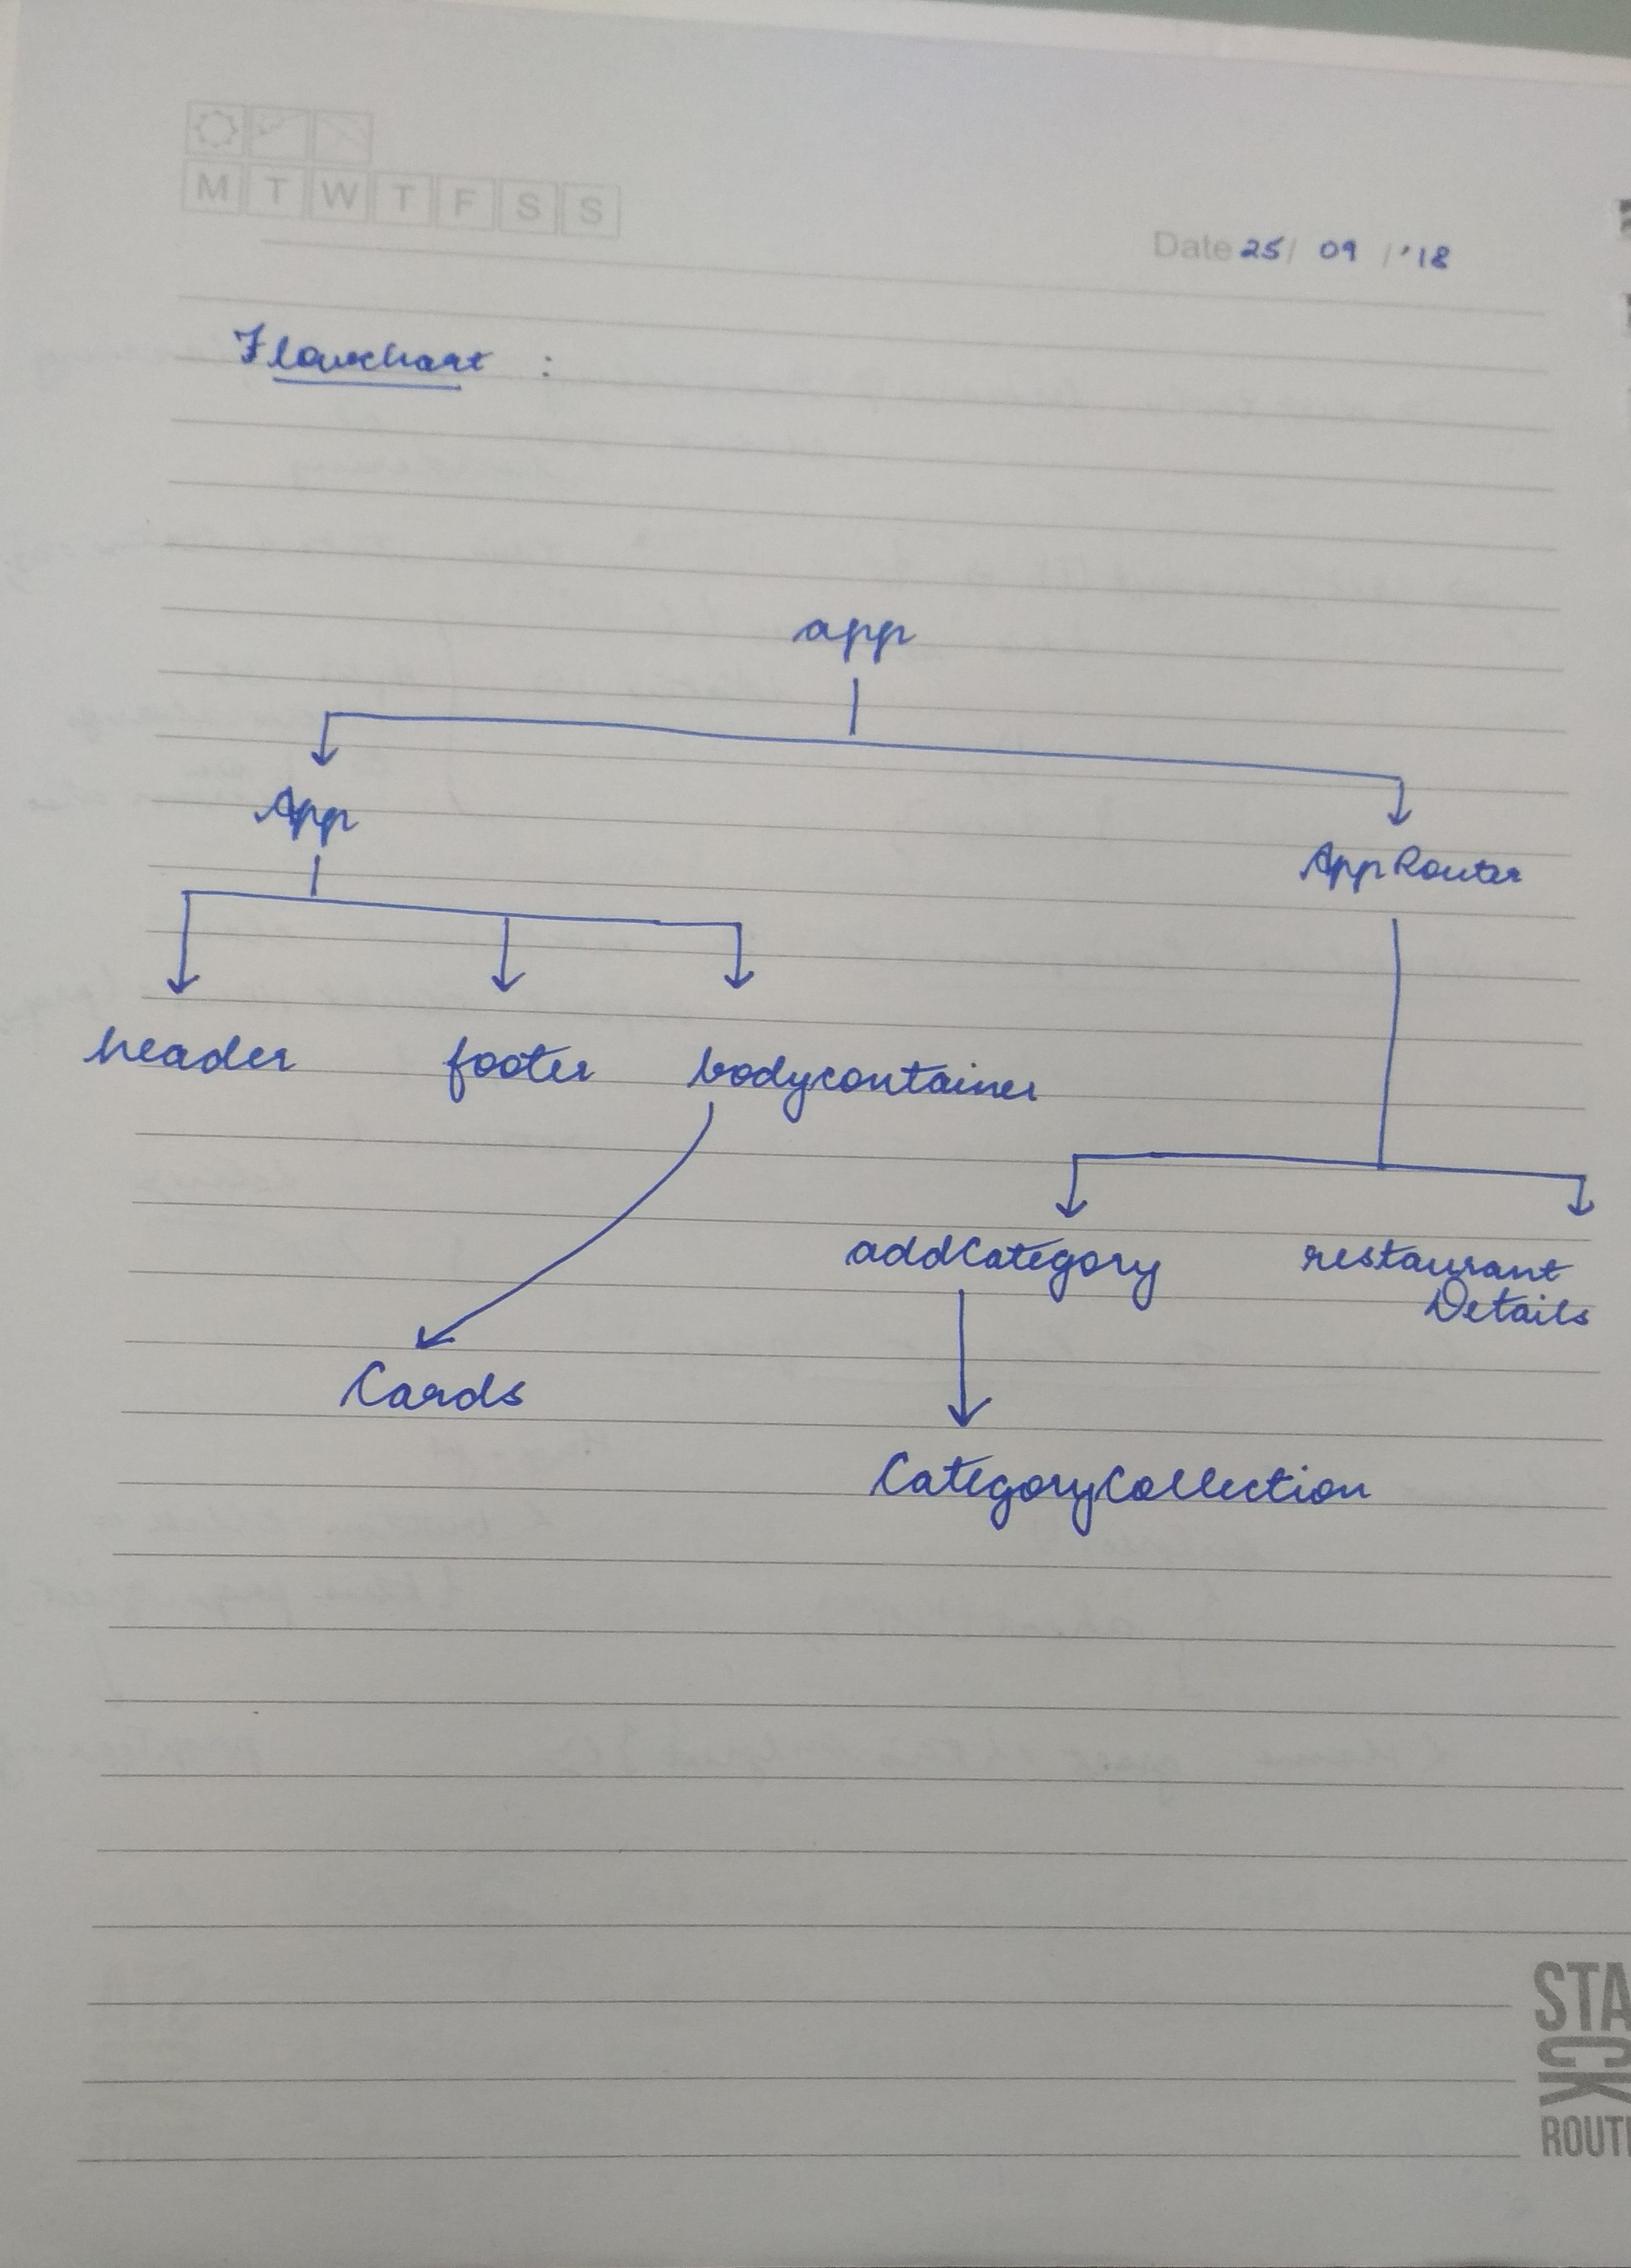 M T W T F S S
Date 25/ 09 /'18
Flowchart :
app
App
AppRouter
header footer bodycontainer
addCategory restaurant
Details
Cards
CategoryCollection
STA
CK
ROUT